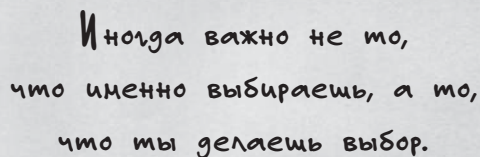 Иногда важно не то,
что именно выбираешь, а то,
что ты делаешь выбор.